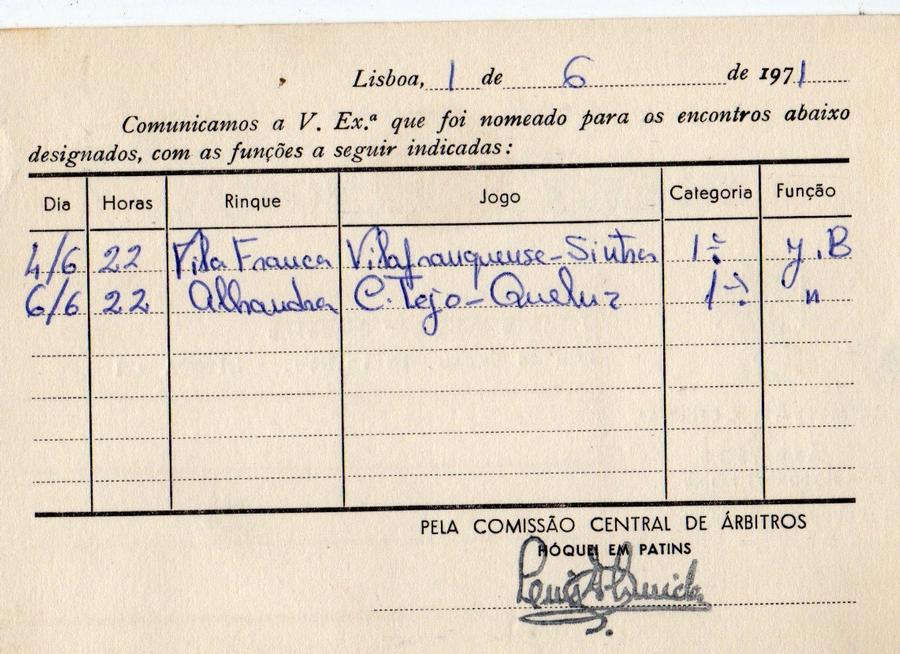 Lisboa, 1 de 6 de 1971
Comunicamos a V. Ex.ª que foi nomeado para os encontros abaixo
designados, com as funções a seguir indicadas:
Dia Horas Rinque Jogo Categoria Função
4/6 22 Vila Franca Vilafranquense - Sintra 1ª y.B
6/6 22 Alhandra C. Tejo - Queluz 1ª "
PELA COMISSÃO CENTRAL DE ÁRBITROS
HÓQUEI EM PATINS